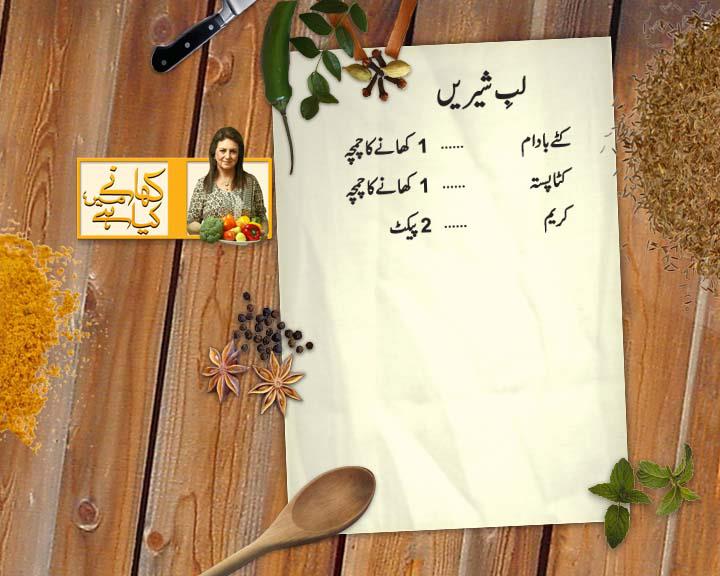 لبِ شیریں
کٹے بادام ...... 1 کھانے کا چمچہ
کٹا پستہ ...... 1 کھانے کا چمچہ
کریم ...... 2 پیکٹ
کھانے
میں
کیا ہے